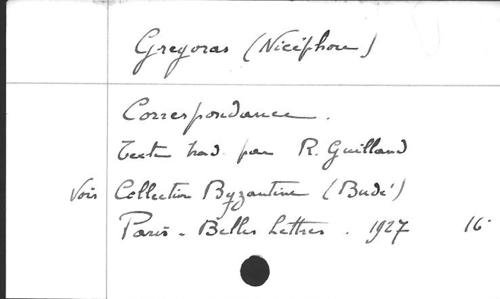 Gregoras (Nicéphore)
Correspondance.
Texte trad. par R. Guilland
Voir Collection Byzantine (Budé)
Paris - Belles Lettres. 1927 16°